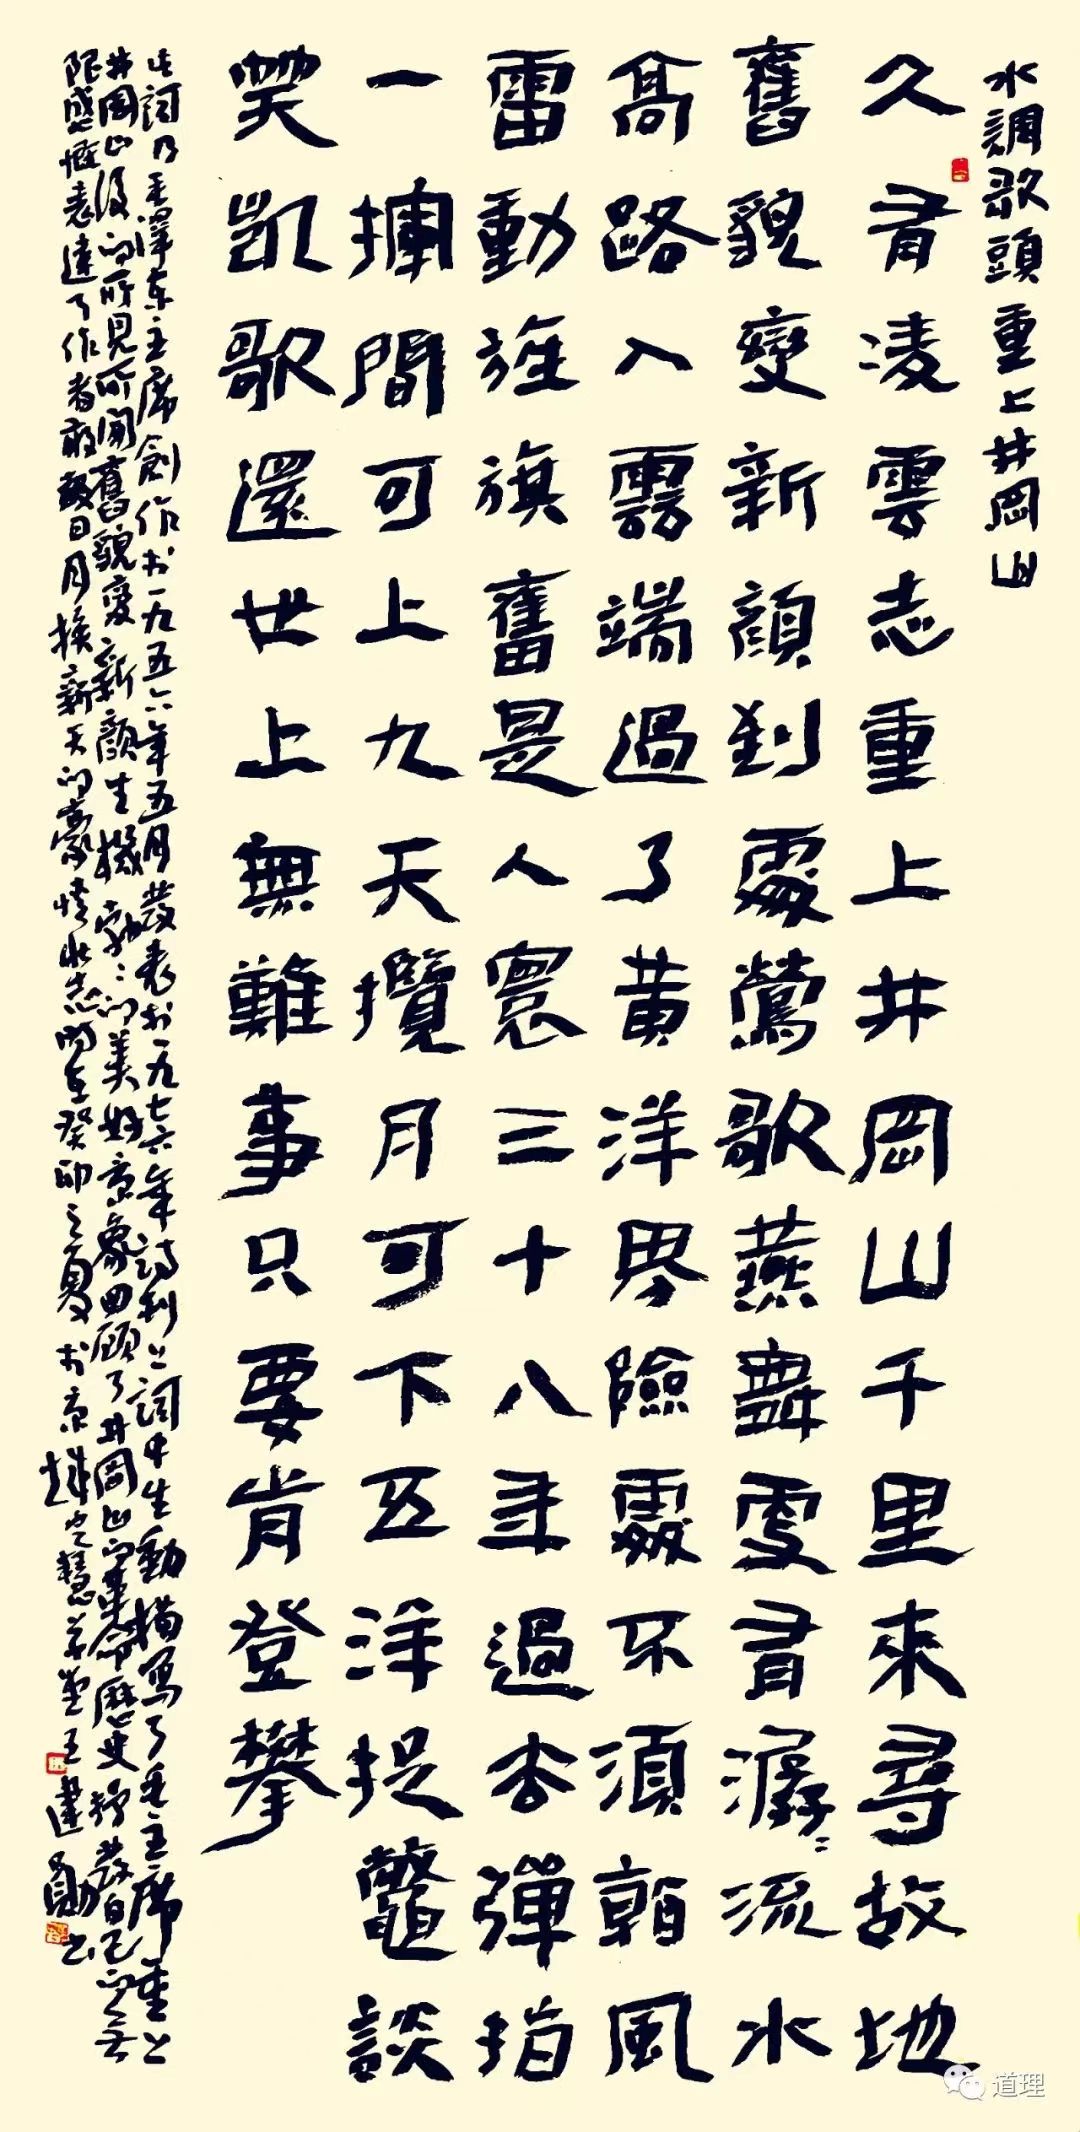 水調歌頭重上井岡山
久有凌雲志重上井岡山千里來尋故地
舊貌變新顏到處鶯歌燕舞更有潺〻流水
高路入雲端過了黃洋界險處不須看風
雷動旌旗奮是人寰三十八年過去彈指
一揮間可上九天攬月可下五洋捉鱉談
笑凱歌還世上無難事只要肯登攀
此詞乃毛澤東主席創作於一九五六年五月發表於一九七六年詩刊上詞中生動描寫了毛主席重上
井岡山後的所見所聞舊貌變新顏生機勃〻的美好景象回顧了井岡山的革命歷史抒發自己的無
限感慨表達了作者敢教日月換新天的豪情壯志時在癸卯之夏於京城王建勛書
道理